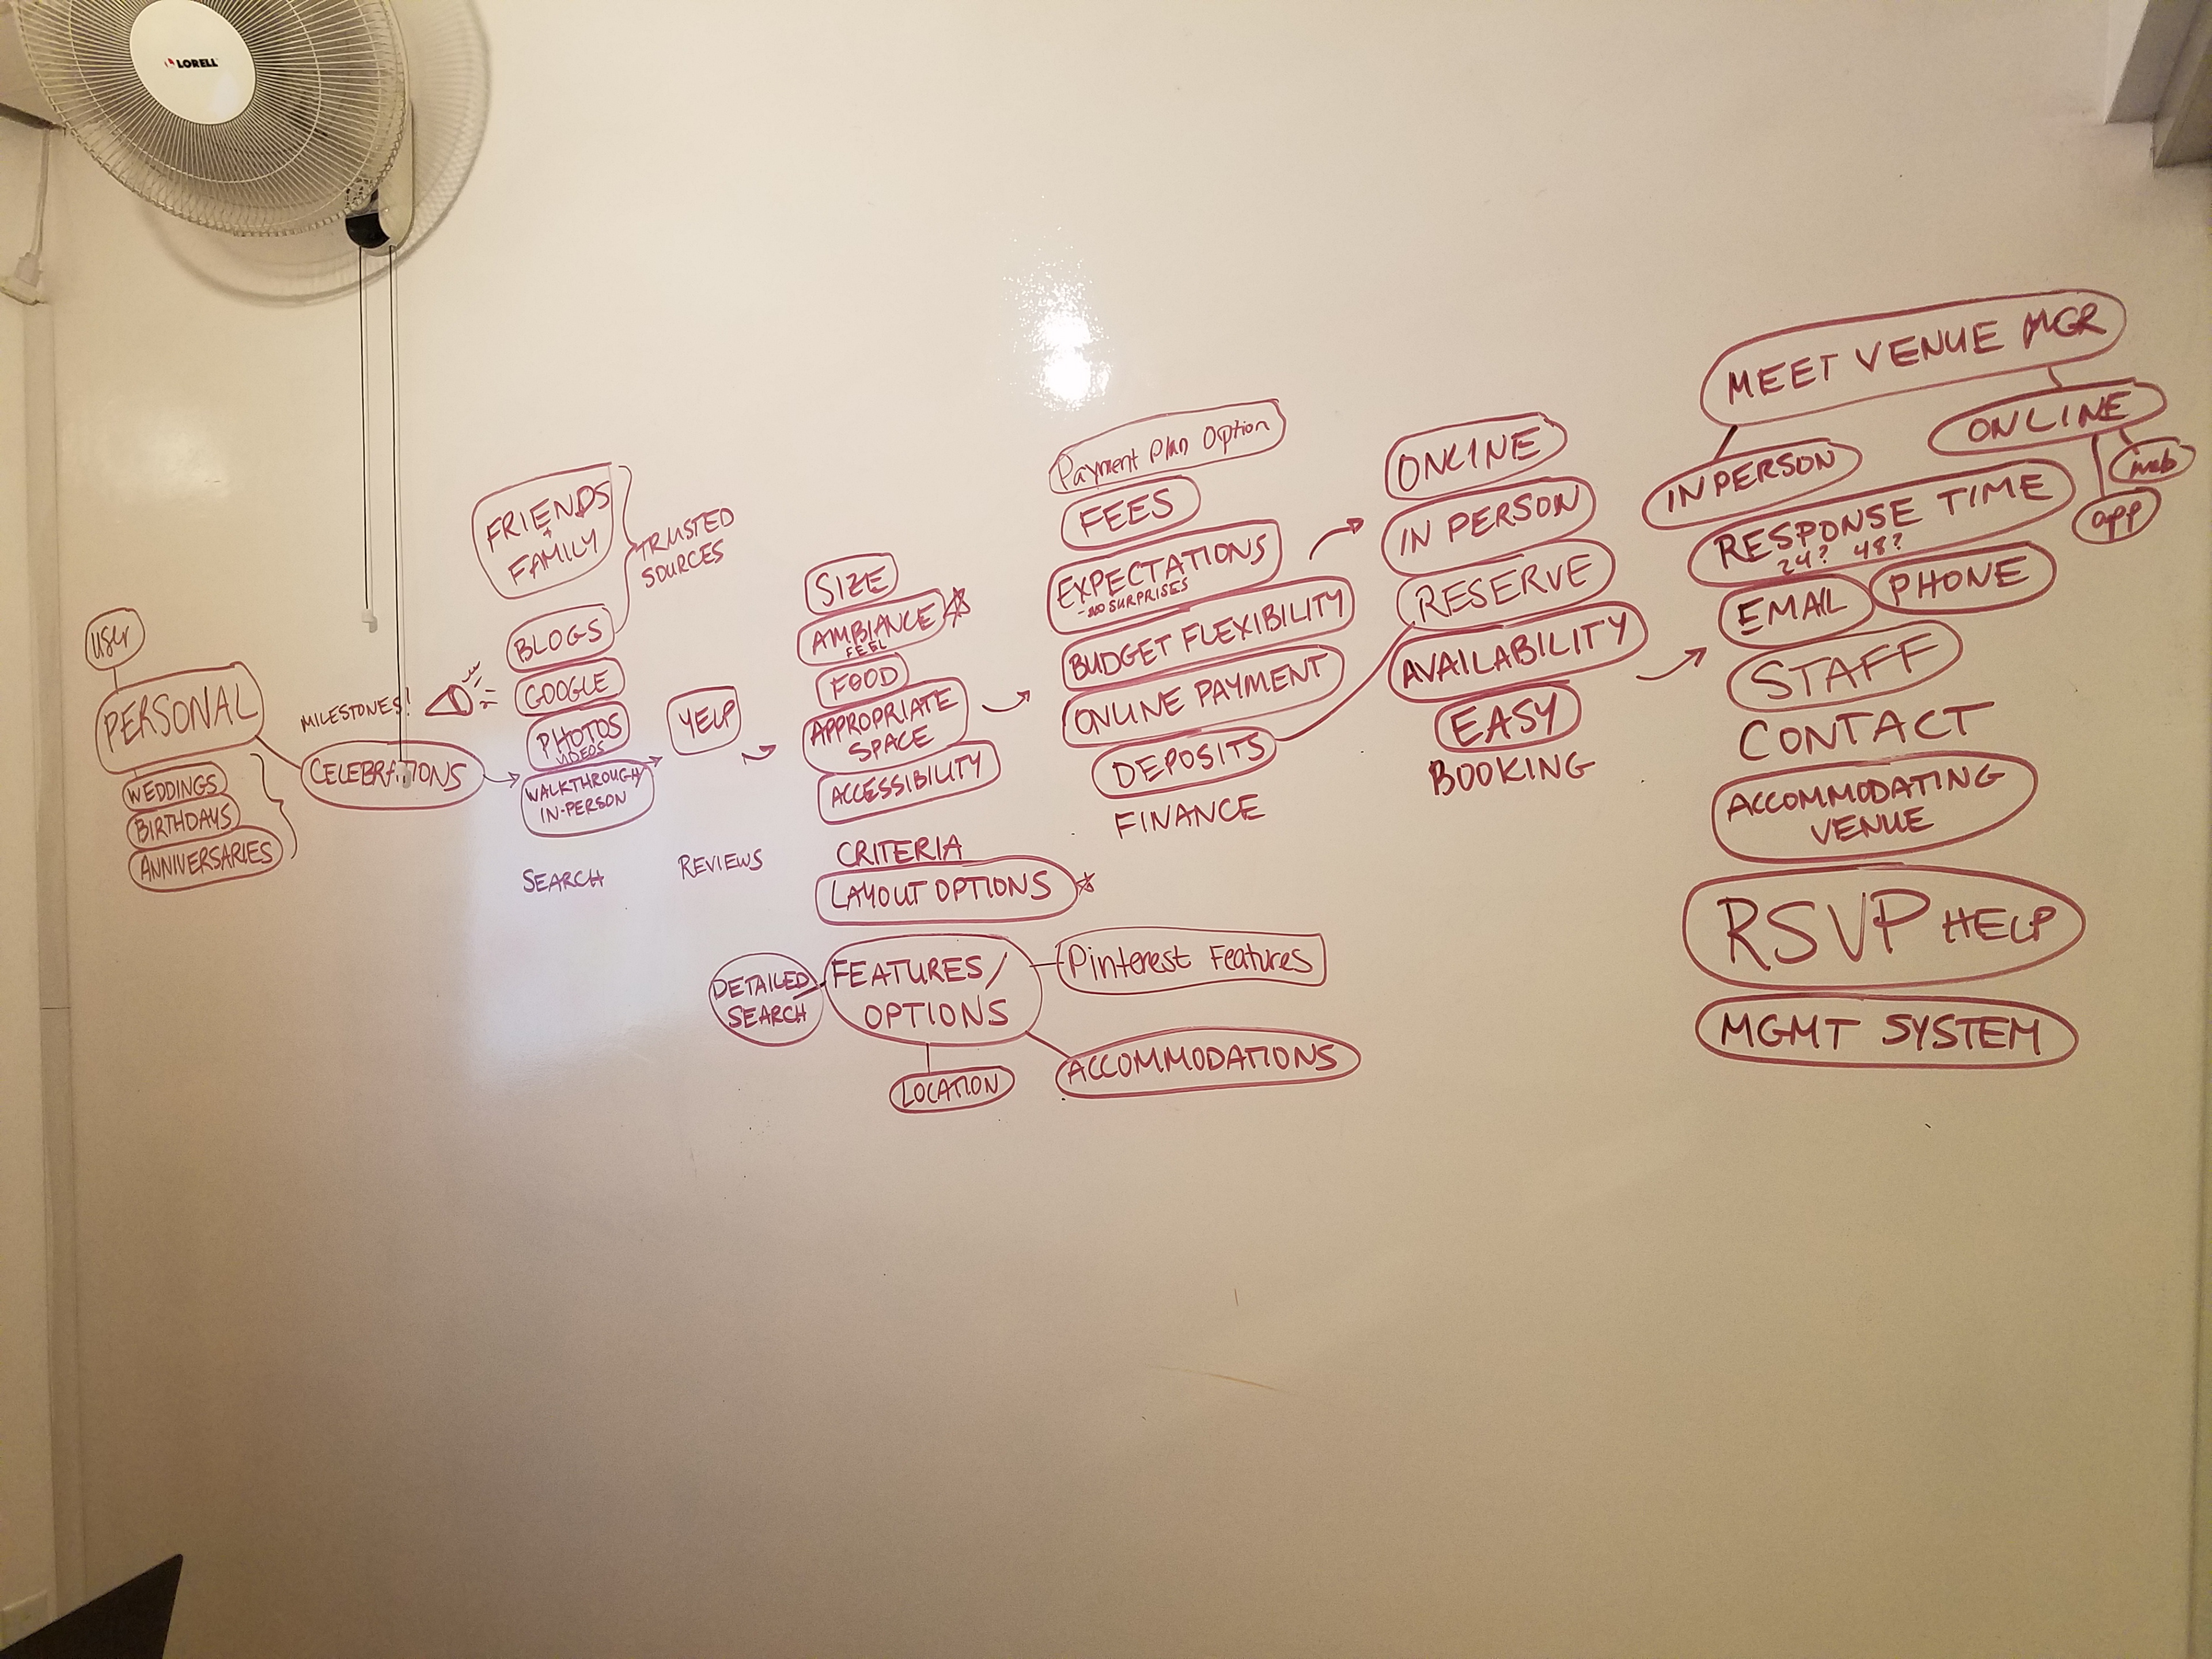 LORELL
user
PERSONAL
WEDDINGS
BIRTHDAYS
ANNIVERSARIES
MILESTONES!
CELEBRATIONS
FRIENDS
+
FAMILY
TRUSTED
SOURCES
BLOGS
GOOGLE
PHOTOS
VIDEOS
WALKTHROUGH/
IN-PERSON
SEARCH
YELP
REVIEWS
SIZE
AMBIANCE
FEEL
FOOD
APPROPRIATE
SPACE
ACCESSIBILITY
CRITERIA
LAYOUT OPTIONS
DETAILED
SEARCH
FEATURES/
OPTIONS
Pinterest Features
LOCATION
ACCOMMODATIONS
Payment Plan Option
FEES
EXPECTATIONS
-NO SURPRISES
BUDGET FLEXIBILITY
ONLINE PAYMENT
DEPOSITS
FINANCE
ONLINE
IN PERSON
RESERVE
AVAILABILITY
EASY
BOOKING
MEET VENUE MGR
ONLINE
web
app
IN PERSON
RESPONSE TIME
24? 48?
EMAIL
PHONE
STAFF
CONTACT
ACCOMMODATING
VENUE
RSVP HELP
MGMT SYSTEM